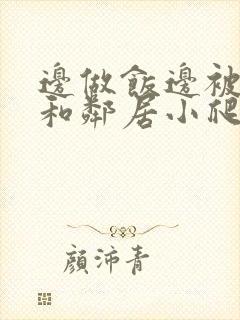 邊做飯邊被
和鄰居小爬
顏沛青